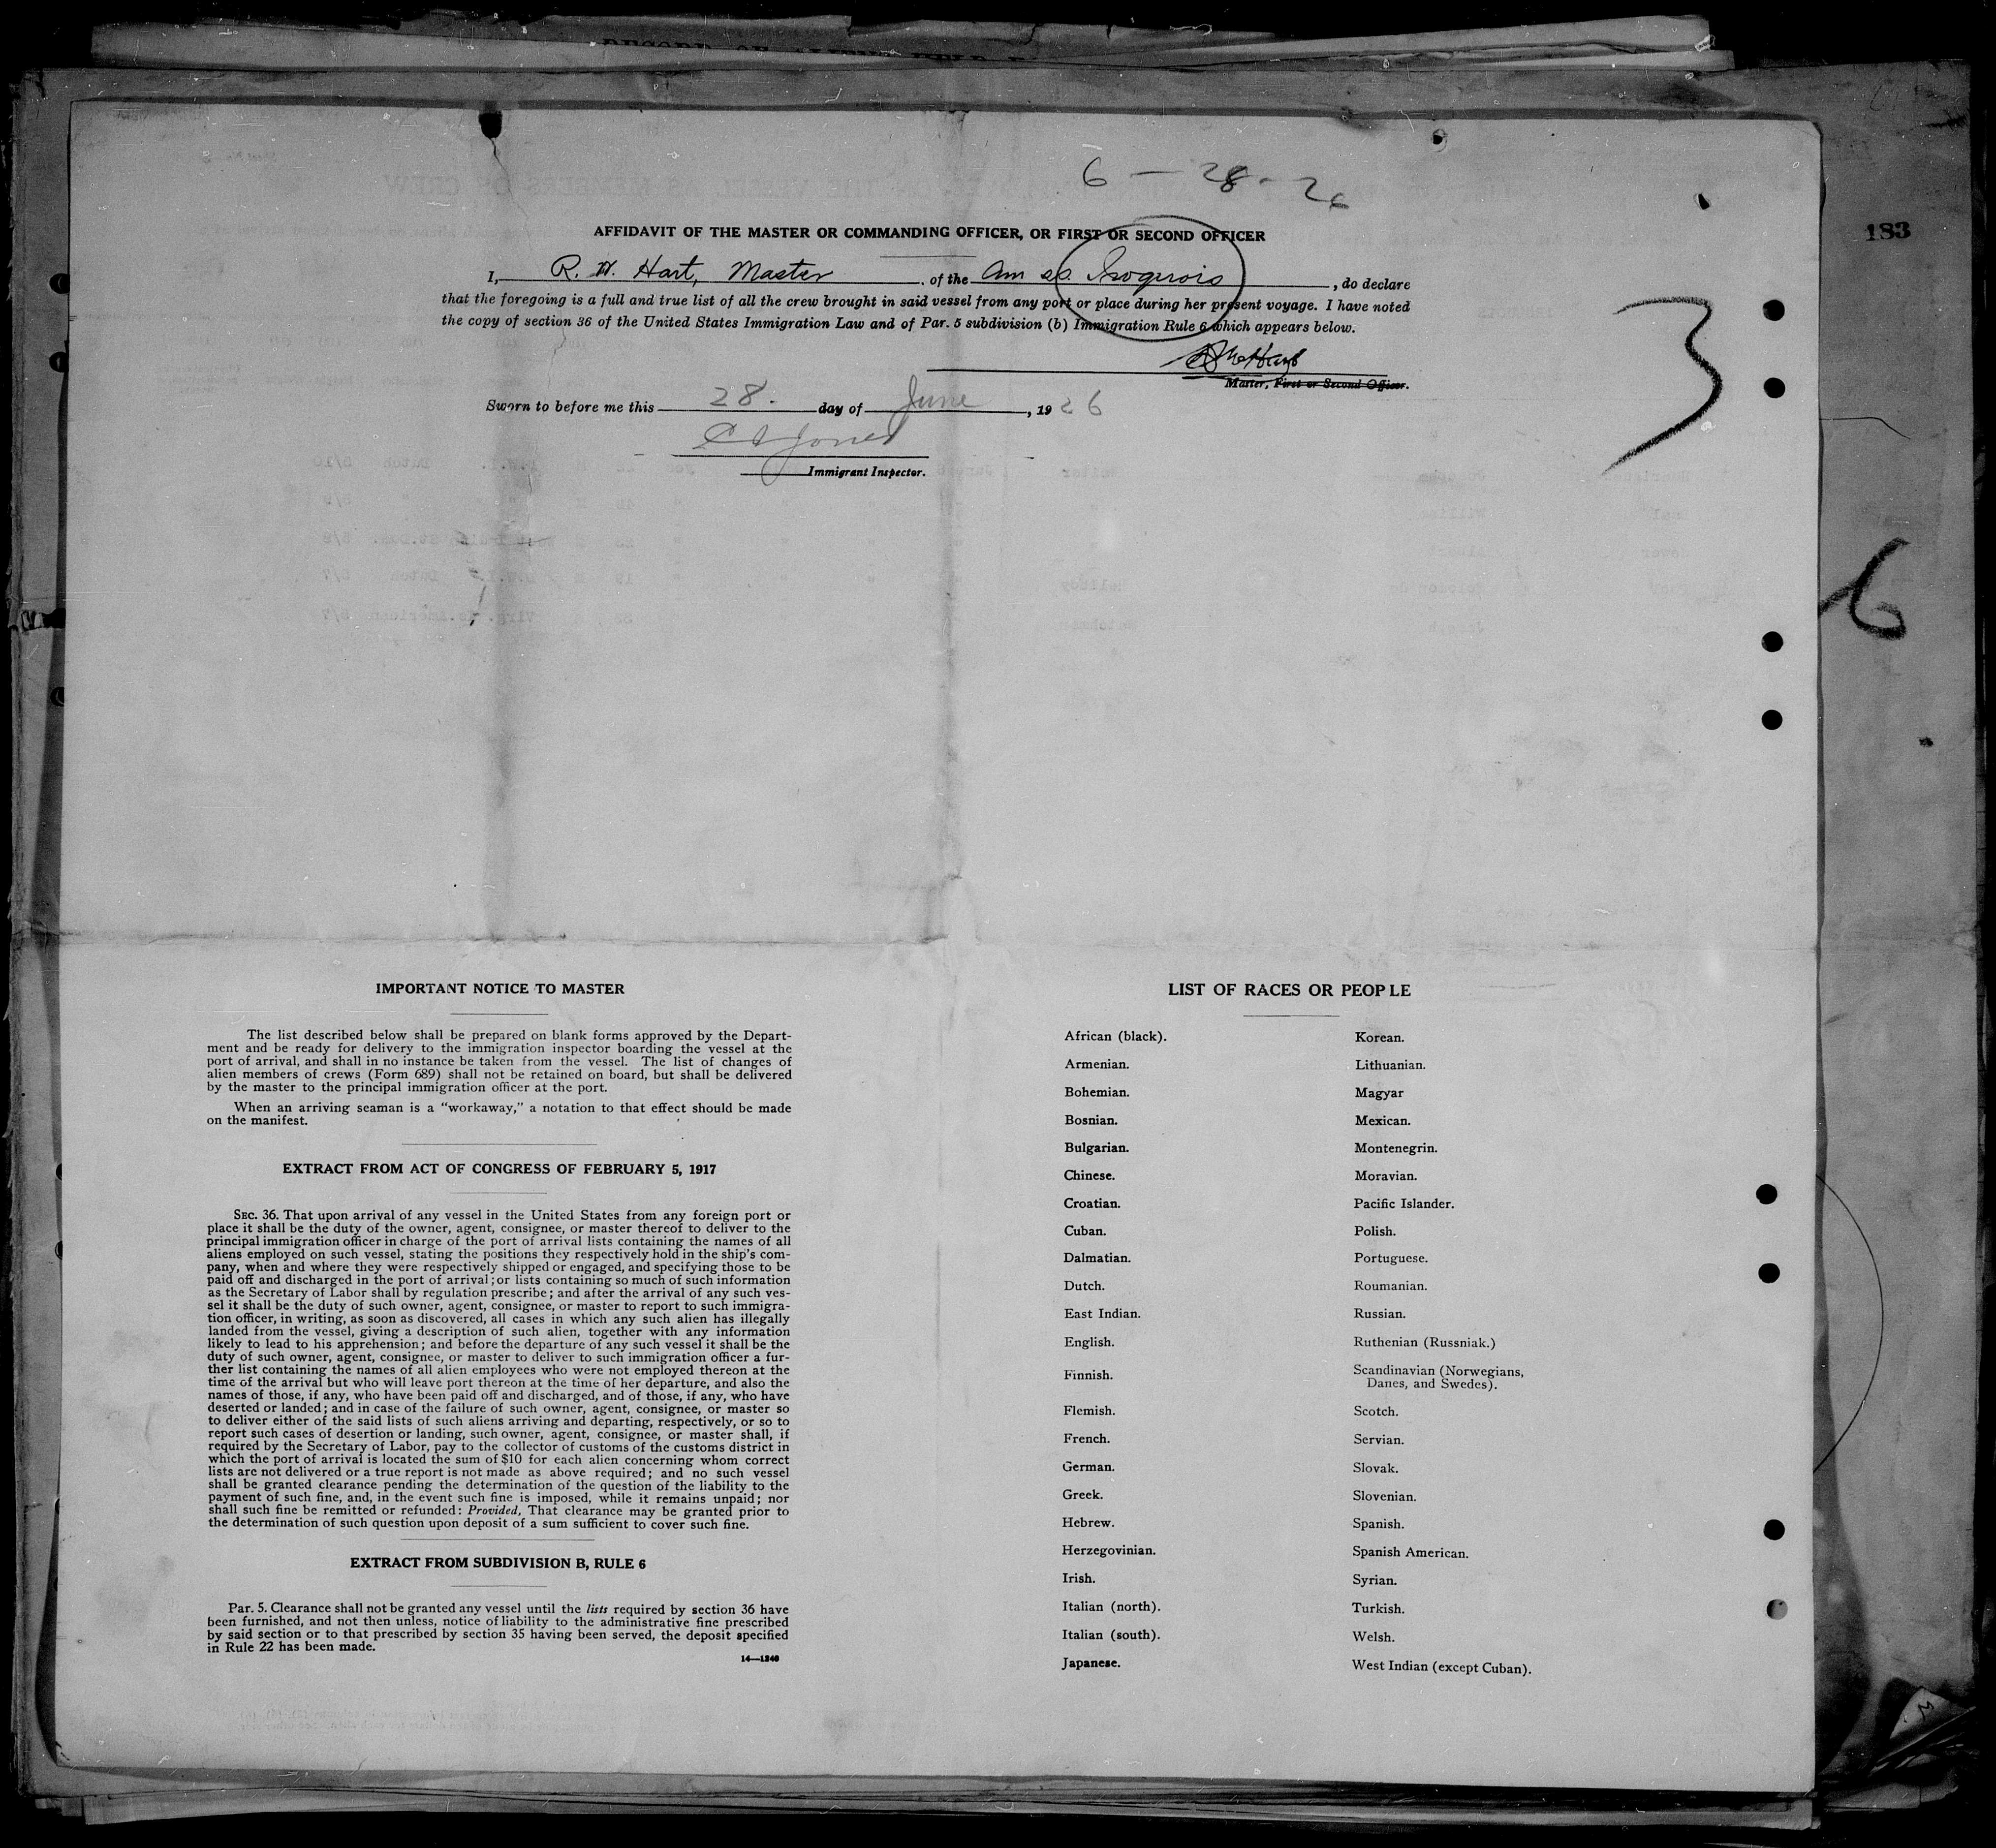 6 - 28 - 26
AFFIDAVIT OF THE MASTER OR COMMANDING OFFICER, OR FIRST OR SECOND OFFICER
I, R. W. Hart, Master, of the Am ss. Iroquois, do declare
that the foregoing is a full and true list of all the crew brought in said vessel from any port or place during her present voyage. I have noted
the copy of section 36 of the United States Immigration Law and of Par. 5 subdivision (b) Immigration Rule 6 which appears below.
Master, First or Second Officer.
Sworn to before me this 28. day of June, 1926
Jones
Immigrant Inspector.
183
3
6
IMPORTANT NOTICE TO MASTER
The list described below shall be prepared on blank forms approved by the Depart-
ment and be ready for delivery to the immigration inspector boarding the vessel at the
port of arrival, and shall in no instance be taken from the vessel. The list of changes of
alien members of crews (Form 689) shall not be retained on board, but shall be delivered
by the master to the principal immigration officer at the port.
When an arriving seaman is a "workaway," a notation to that effect should be made
on the manifest.
EXTRACT FROM ACT OF CONGRESS OF FEBRUARY 5, 1917
SEC. 36. That upon arrival of any vessel in the United States from any foreign port or
place it shall be the duty of the owner, agent, consignee, or master thereof to deliver to the
principal immigration officer in charge of the port of arrival lists containing the names of all
aliens employed on such vessel, stating the positions they respectively hold in the ship's com-
pany, when and where they were respectively shipped or engaged, and specifying those to be
paid off and discharged in the port of arrival; or lists containing so much of such information
as the Secretary of Labor shall by regulation prescribe; and after the arrival of any such ves-
sel it shall be the duty of such owner, agent, consignee, or master to report to such immigra-
tion officer, in writing, as soon as discovered, all cases in which any such alien has illegally
landed from the vessel, giving a description of such alien, together with any information
likely to lead to his apprehension; and before the departure of any such vessel it shall be the
duty of such owner, agent, consignee, or master to deliver to such immigration officer a fur-
ther list containing the names of all alien employees who were not employed thereon at the
time of the arrival but who will leave port thereon at the time of her departure, and also the
names of those, if any, who have been paid off and discharged, and of those, if any, who have
deserted or landed; and in case of the failure of such owner, agent, consignee, or master so
to deliver either of the said lists of such aliens arriving and departing, respectively, or so to
report such cases of desertion or landing, such owner, agent, consignee, or master shall, if
required by the Secretary of Labor, pay to the collector of customs of the customs district in
which the port of arrival is located the sum of $10 for each alien concerning whom correct
lists are not delivered or a true report is not made as above required; and no such vessel
shall be granted clearance pending the determination of the question of the liability to the
payment of such fine, and, in the event such fine is imposed, while it remains unpaid; nor
shall such fine be remitted or refunded: Provided, That clearance may be granted prior to
the determination of such question upon deposit of a sum sufficient to cover such fine.
EXTRACT FROM SUBDIVISION B, RULE 6
Par. 5. Clearance shall not be granted any vessel until the lists required by section 36 have
been furnished, and not then unless, notice of liability to the administrative fine prescribed
by said section or to that prescribed by section 35 having been served, the deposit specified
in Rule 22 has been made.
14—1240
LIST OF RACES OR PEOPLE
African (black).
Armenian.
Bohemian.
Bosnian.
Bulgarian.
Chinese.
Croatian.
Cuban.
Dalmatian.
Dutch.
East Indian.
English.
Finnish.
Flemish.
French.
German.
Greek.
Hebrew.
Herzegovinian.
Irish.
Italian (north).
Italian (south).
Japanese.
Korean.
Lithuanian.
Magyar
Mexican.
Montenegrin.
Moravian.
Pacific Islander.
Polish.
Portuguese.
Roumanian.
Russian.
Ruthenian (Russniak.)
Scandinavian (Norwegians,
Danes, and Swedes).
Scotch.
Servian.
Slovak.
Slovenian.
Spanish.
Spanish American.
Syrian.
Turkish.
Welsh.
West Indian (except Cuban).